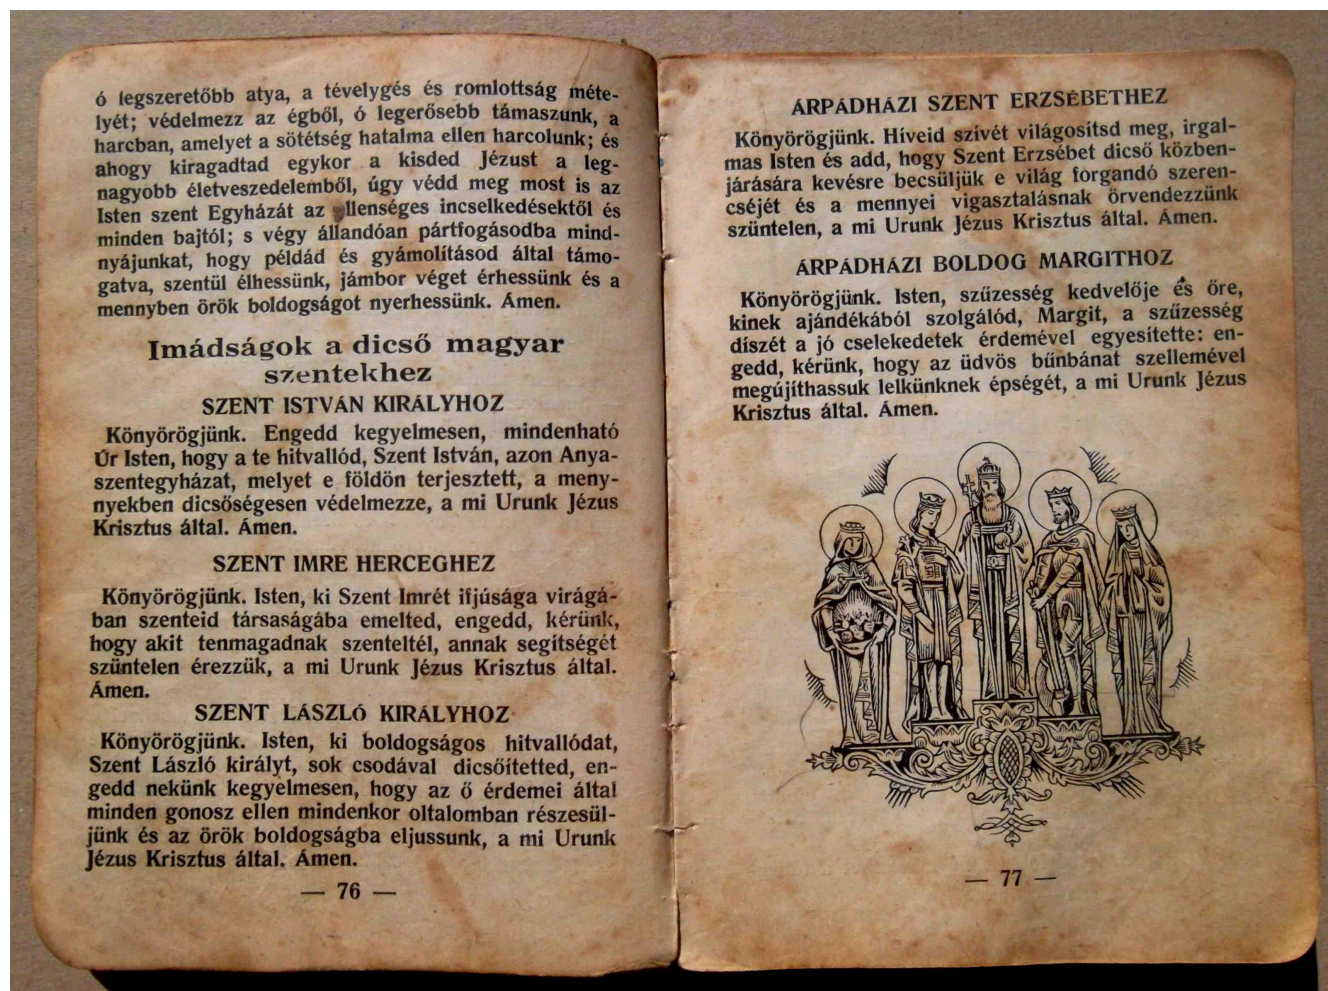 ó legszeretőbb atya, a tévelygés és romlottság méte-
lyét; védelmezz az égből, ó legerősebb támaszunk, a
harcban, amelyet a sötétség hatalma ellen harcolunk; és
ahogy kiragadtad egykor a kisded Jézust a leg-
nagyobb életveszedelemből, úgy védd meg most is az
Isten szent Egyházát az ellenséges incselkedésektől és
minden bajtól; s végy állandóan pártfogásodba mind-
nyájunkat, hogy példád és gyámolításod által támo-
gatva, szentül élhessünk, jámbor véget érhessünk és a
mennyben örök boldogságot nyerhessünk. Ámen.
Imádságok a dicső magyar
szentekhez
SZENT ISTVÁN KIRÁLYHOZ
Könyörögjünk. Engedd kegyelmesen, mindenható
Úr Isten, hogy a te hitvallód, Szent István, azon Anya-
szentegyházat, melyet e földön terjesztett, a meny-
nyekben dicsőségesen védelmezze, a mi Urunk Jézus
Krisztus által. Ámen.
SZENT IMRE HERCEGHEZ
Könyörögjünk. Isten, ki Szent Imrét ifjúsága virágá-
ban szenteid társaságába emelted, engedd, kérünk,
hogy akit tenmagadnak szenteltél, annak segítségét
szüntelen érezzük, a mi Urunk Jézus Krisztus által.
Ámen.
SZENT LÁSZLÓ KIRÁLYHOZ
Könyörögjünk. Isten, ki boldogságos hitvallódat,
Szent László királyt, sok csodával dicsőítetted, en-
gedd nekünk kegyelmesen, hogy az ő érdemei által
minden gonosz ellen mindenkor oltalomban részesül-
jünk és az örök boldogságba eljussunk, a mi Urunk
Jézus Krisztus által. Ámen.
— 76 —
ÁRPÁDHÁZI SZENT ERZSÉBETHEZ
Könyörögjünk. Híveid szívét világosítsd meg, irgal-
mas Isten és add, hogy Szent Erzsébet dicső közben-
járására kevésre becsüljük e világ forgandó szeren-
cséjét és a mennyei vigasztalásnak örvendezzünk
szüntelen, a mi Urunk Jézus Krisztus által. Ámen.
ÁRPÁDHÁZI BOLDOG MARGITHOZ
Könyörögjünk. Isten, szűzesség kedvelője és őre,
kinek ajándékából szolgálód, Margit, a szűzesség
díszét a jó cselekedetek érdemével egyesítette: en-
gedd, kérünk, hogy az üdvös bűnbánat szellemével
megújíthassuk lelkünknek épségét, a mi Urunk Jézus
Krisztus által. Ámen.
— 77 —